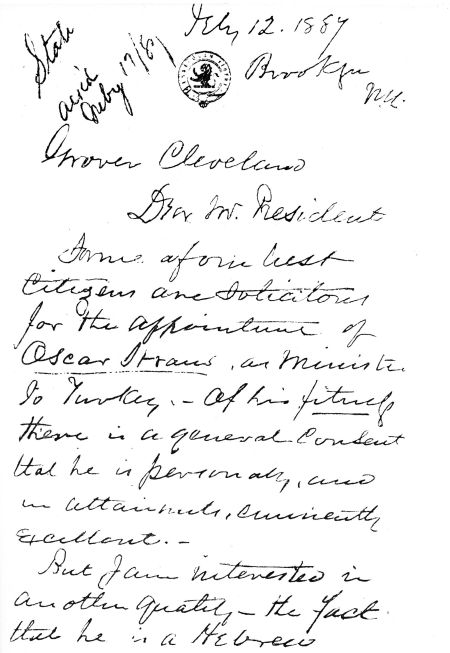 Feby 12. 1887
State
Brooklyn
N.Y.
Grover Cleveland
Dear Mr. President
Some of our best
Citizens are Solicitous
for the appointment of
Oscar Straus, as Ministe
to Turkey. - Of his fitness
there is a general Consent
that he is personally, and
in attainments, eminently
excellent. -
But I am interested in
another quality - the fact
that he is a Hebrew